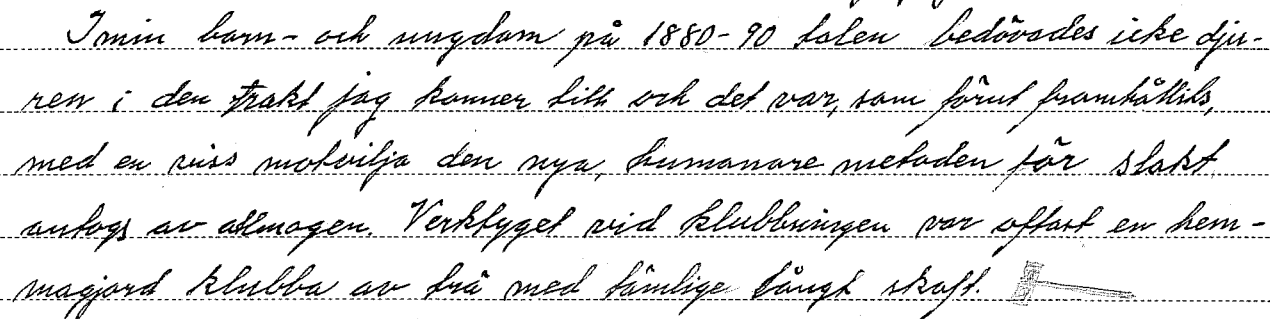 I min barn- och ungdom på 1880-90 talen bedövades icke dju-
ren i den trakt jag känner till och det var, som förut framhållits,
med en viss motvilja den nya, humanare metoden för slakt
antogs av allmogen. Verktyget vid klubbningen var oftast en hem-
magjord klubba av trä med tämlige långt skaft.